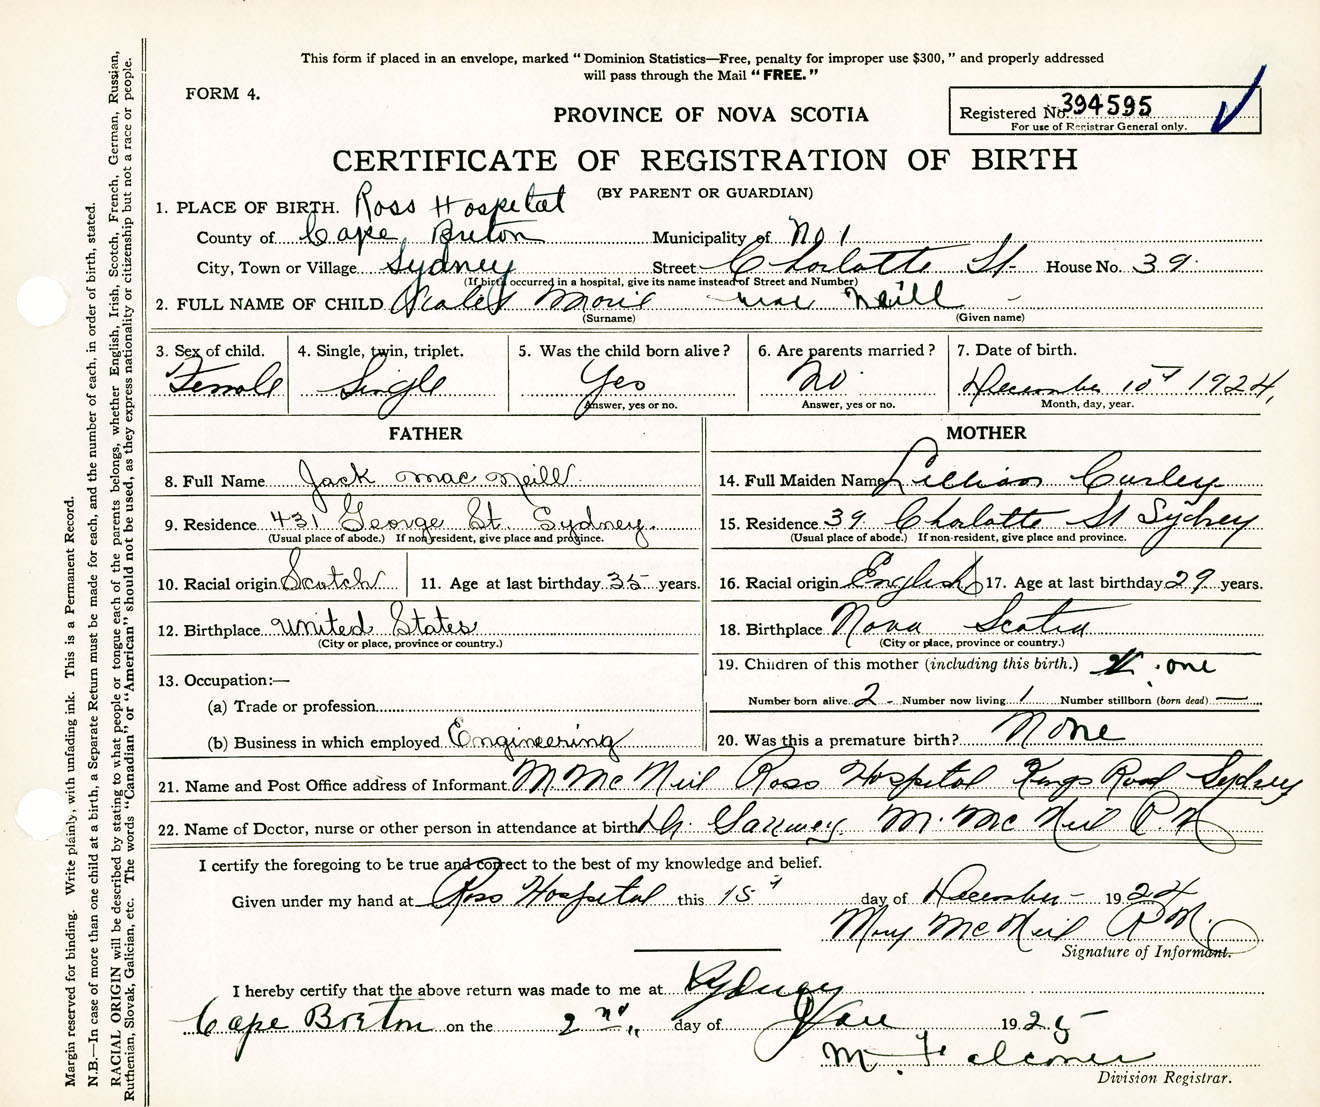 This form if placed in an envelope, marked "Dominion Statistics—Free, penalty for improper use $300," and properly addressed
will pass through the Mail "FREE."
FORM 4.
PROVINCE OF NOVA SCOTIA
Registered No. 394595
For use of Registrar General only.
CERTIFICATE OF REGISTRATION OF BIRTH
(BY PARENT OR GUARDIAN)
1. PLACE OF BIRTH. Ross Hospital
County of Cape Breton Municipality of No 1
City, Town or Village Sydney Street Charlotte St. House No. 39
(If birth occurred in a hospital, give its name instead of Street and Number)
2. FULL NAME OF CHILD Marie Mac Neill
(Surname) (Given name)
3. Sex of child. 4. Single, twin, triplet. 5. Was the child born alive? 6. Are parents married? 7. Date of birth.
Female Single Yes No. December 10th 1924,
Answer, yes or no. Answer, yes or no. Month, day, year.
FATHER MOTHER
8. Full Name Jack Mac Neill 14. Full Maiden Name Lillian Curley
9. Residence 431 George St. Sydney. 15. Residence 39 Charlotte St Sydney
(Usual place of abode.) If non-resident, give place and province. (Usual place of abode.) If non-resident, give place and province.
10. Racial origin Scotch 11. Age at last birthday 35 years. 16. Racial origin English 17. Age at last birthday 29 years.
12. Birthplace United States 18. Birthplace Nova Scotia
(City or place, province or country.) (City or place, province or country.)
19. Children of this mother (including this birth.) one
13. Occupation:—
(a) Trade or profession Number born alive 2 - Number now living 1 Number stillborn (born dead) —
(b) Business in which employed Engineering 20. Was this a premature birth? None
21. Name and Post Office address of Informant M. Mc Neil Ross Hospital Kings Road Sydney
22. Name of Doctor, nurse or other person in attendance at birth Dr. M. Mc Neil R.N
I certify the foregoing to be true and correct to the best of my knowledge and belief.
Given under my hand at Ross Hospital this 15th day of December 1924
Mary Mc Neil R.N.
Signature of Informant.
I hereby certify that the above return was made to me at Sydney
Cape Breton on the 2nd day of Jan 1925
M. Falconer
Division Registrar.
Margin reserved for binding. Write plainly, with unfading ink. This is a Permanent Record.
N.B.—In case of more than one child at a birth, a Separate Return must be made for each, and the number of each, in order of birth, stated.
RACIAL ORIGIN will be described by stating to what people or tongue each of the parents belongs, whether English, Irish, Scotch, French, German, Russian,
Ruthenian, Slovak, Galician, etc. The words "Canadian" or "American" should not be used, as they express nationality or citizenship but not a race or people.